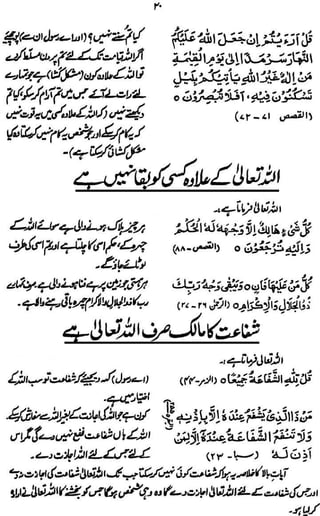 ۲۰
قُلْ اَرَءَيْتُمْ اِنْ جَعَلَ اللّٰهُ عَلَيْكُمُ
النَّهَارَ سَرْمَدًا اِلٰى يَوْمِ الْقِيٰمَةِ
مَنْ اِلٰهٌ غَيْرُ اللّٰهِ يَاْتِيْكُمْ بِلَيْلٍ
تَسْكُنُوْنَ فِيْهِ، اَفَلَا تُبْصِرُوْنَ ○
(القصص ۷۱-۷۲)
کیا تم سنتے نہیں؟ (اور اے رسول ان سے) پوچھئے
اگر اللہ قیامت تک کے لئے تم پر دن مسلط کردے
تو اللہ کے علاوہ کون (مشکل کشا) ہے جو تمہارے
لئے رات لے آئے جس میں تم آرام کر سکو، کیا تم
دیکھتے نہیں؟ (کہ اللہ کے علاوہ کسی میں یہ قوت نہیں
کہ یہ کام کر سکے اور جو شخص یہ کام نہیں کر سکتا وہ کیا
مشکل کشائی کر سکتا ہے)
اللہ تعالیٰ کے علاوہ کسی کو بقا نہیں ہے
اللہ تعالیٰ فرماتا ہے۔
كُلُّ شَيْءٍ هَالِكٌ اِلَّا وَجْهَهٗ لَهُ الْحُكْمُ
وَاِلَيْهِ تُرْجَعُوْنَ ○ (القصص-۸۸)
ہر چیز ہلاک ہونے والی ہے سوائے اللہ کے
چہرہ کے، حکم اسی کا چلتا ہے اور تم اسی کی طرف
لوٹائے جاؤ گے۔
كُلُّ مَنْ عَلَيْهَا فَانٍ ○ وَيَبْقٰى وَجْهُ رَبِّكَ
ذُو الْجَلَالِ وَالْاِكْرَامِ ○ (الرحمٰن ۲۶-۲۷)
ہر ہستی جو زمین پر ہے فنا ہونے والی ہے، صرف آپ کے
رب کا ذو الجلال والاکرام چہرہ باقی رہنے والا ہے۔
شفاعت کا مالک صرف اللہ تعالیٰ ہے
اللہ تعالیٰ فرماتا ہے۔
قُلْ لِلّٰهِ الشَّفَاعَةُ جَمِيْعًا (الزمر-۴۴)
(اے رسول) کہہ دیجئے کہ شفاعت تو سب اللہ کے
اختیار میں ہے۔
مَنْ ذَا الَّذِيْ يَشْفَعُ عِنْدَهٗ اِلَّا بِاِذْنِهٖ
وَلَا تَنْفَعُ الشَّفَاعَةُ عِنْدَهٗ اِلَّا لِمَنْ
اَذِنَ لَهٗ (سبا-۲۳)
کون ہے جو اللہ کی اجازت کے بغیر اللہ سے سفارش کر سکے
اللہ کے ہاں شفاعت نفع نہیں دے گی مگر اس
کے لئے جس کے لئے اللہ اجازت دے۔
آیات بالا کا خلاصہ یہ ہوا کہ شفاعت کوئی نہیں کر سکتا جب تک اللہ تعالیٰ شفاعت کی اجازت نہ دے
اور جس کی شفاعت کے لئے اللہ تعالیٰ اجازت دے گا وہ وہی شخص ہوگا جس کو بخشنے کا اللہ تعالیٰ نے ارادہ
کر لیا ہو۔